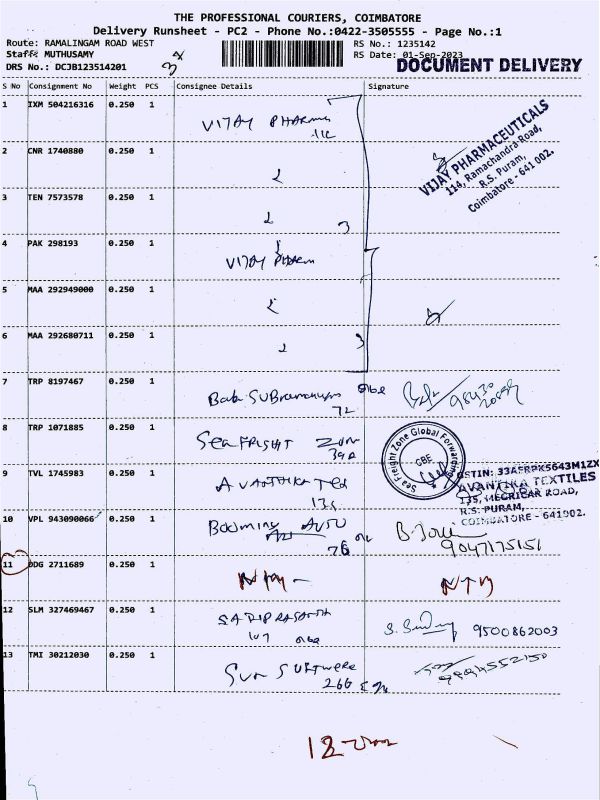 THE PROFESSIONAL COURIERS, COIMBATORE
Delivery Runsheet - PC2 - Phone No.:0422-3505555 - Page No.:1
Route: RAMALINGAM ROAD WEST
RS No.: 1235142
Staff: MUTHUSAMY
RS Date: 01-Sep-2023
DRS No.: DCJB123514201
DOCUMENT DELIVERY
S No Consignment No Weight PCS Consignee Details Signature
1 IXM 504216316 0.250 1 VIJAY PHARMA
VIJAY PHARMACEUTICALS
114, Ramachandra Road,
R.S. Puram,
Coimbatore - 641 002.
2 CNR 1740880 0.250 1
3 TEN 7573578 0.250 1
3
4 PAK 298193 0.250 1 VIJAY PHARM
5 MAA 292949000 0.250 1
6 MAA 292680711 0.250 1
3
7 TRP 8197467 0.250 1
72
8 TRP 1071885 0.250 1 SEA FRIGHT ZON
39A
Sea Freight Zone Global Forwarding
CBE
9 TVL 1745983 0.250 1 AVANTHIKA TEX
135
GSTIN: 33AFRPK5643M1ZX
AVANTIKA TEXTILES
135, MECRICAR ROAD,
R.S. PURAM,
COIMBATORE - 641002.
10 VPL 943090066 0.250 1 BOOMING AUTO
76
9047175151
11 DDG 2711689 0.250 1 NTM NTM
12 SLM 327469467 0.250 1
107
9500862003
13 TMI 30212030 0.250 1 SUN SOFTWERE
266
12